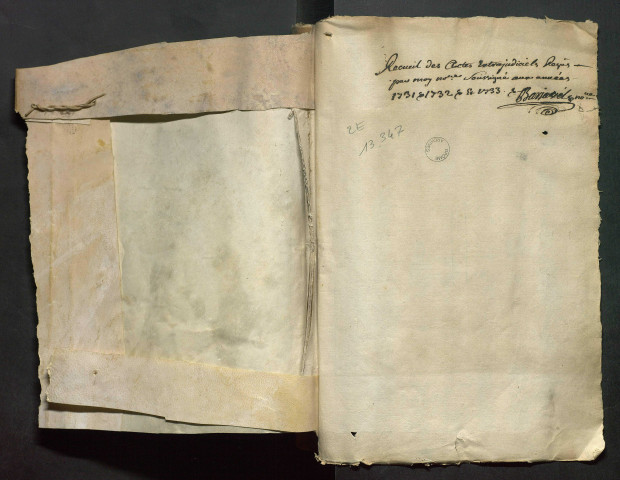 Recueil des Actes Extrajudiciels Reçus
par moy no.re soussigné aux années
1731 & 1732 & 1733
2E
13.947